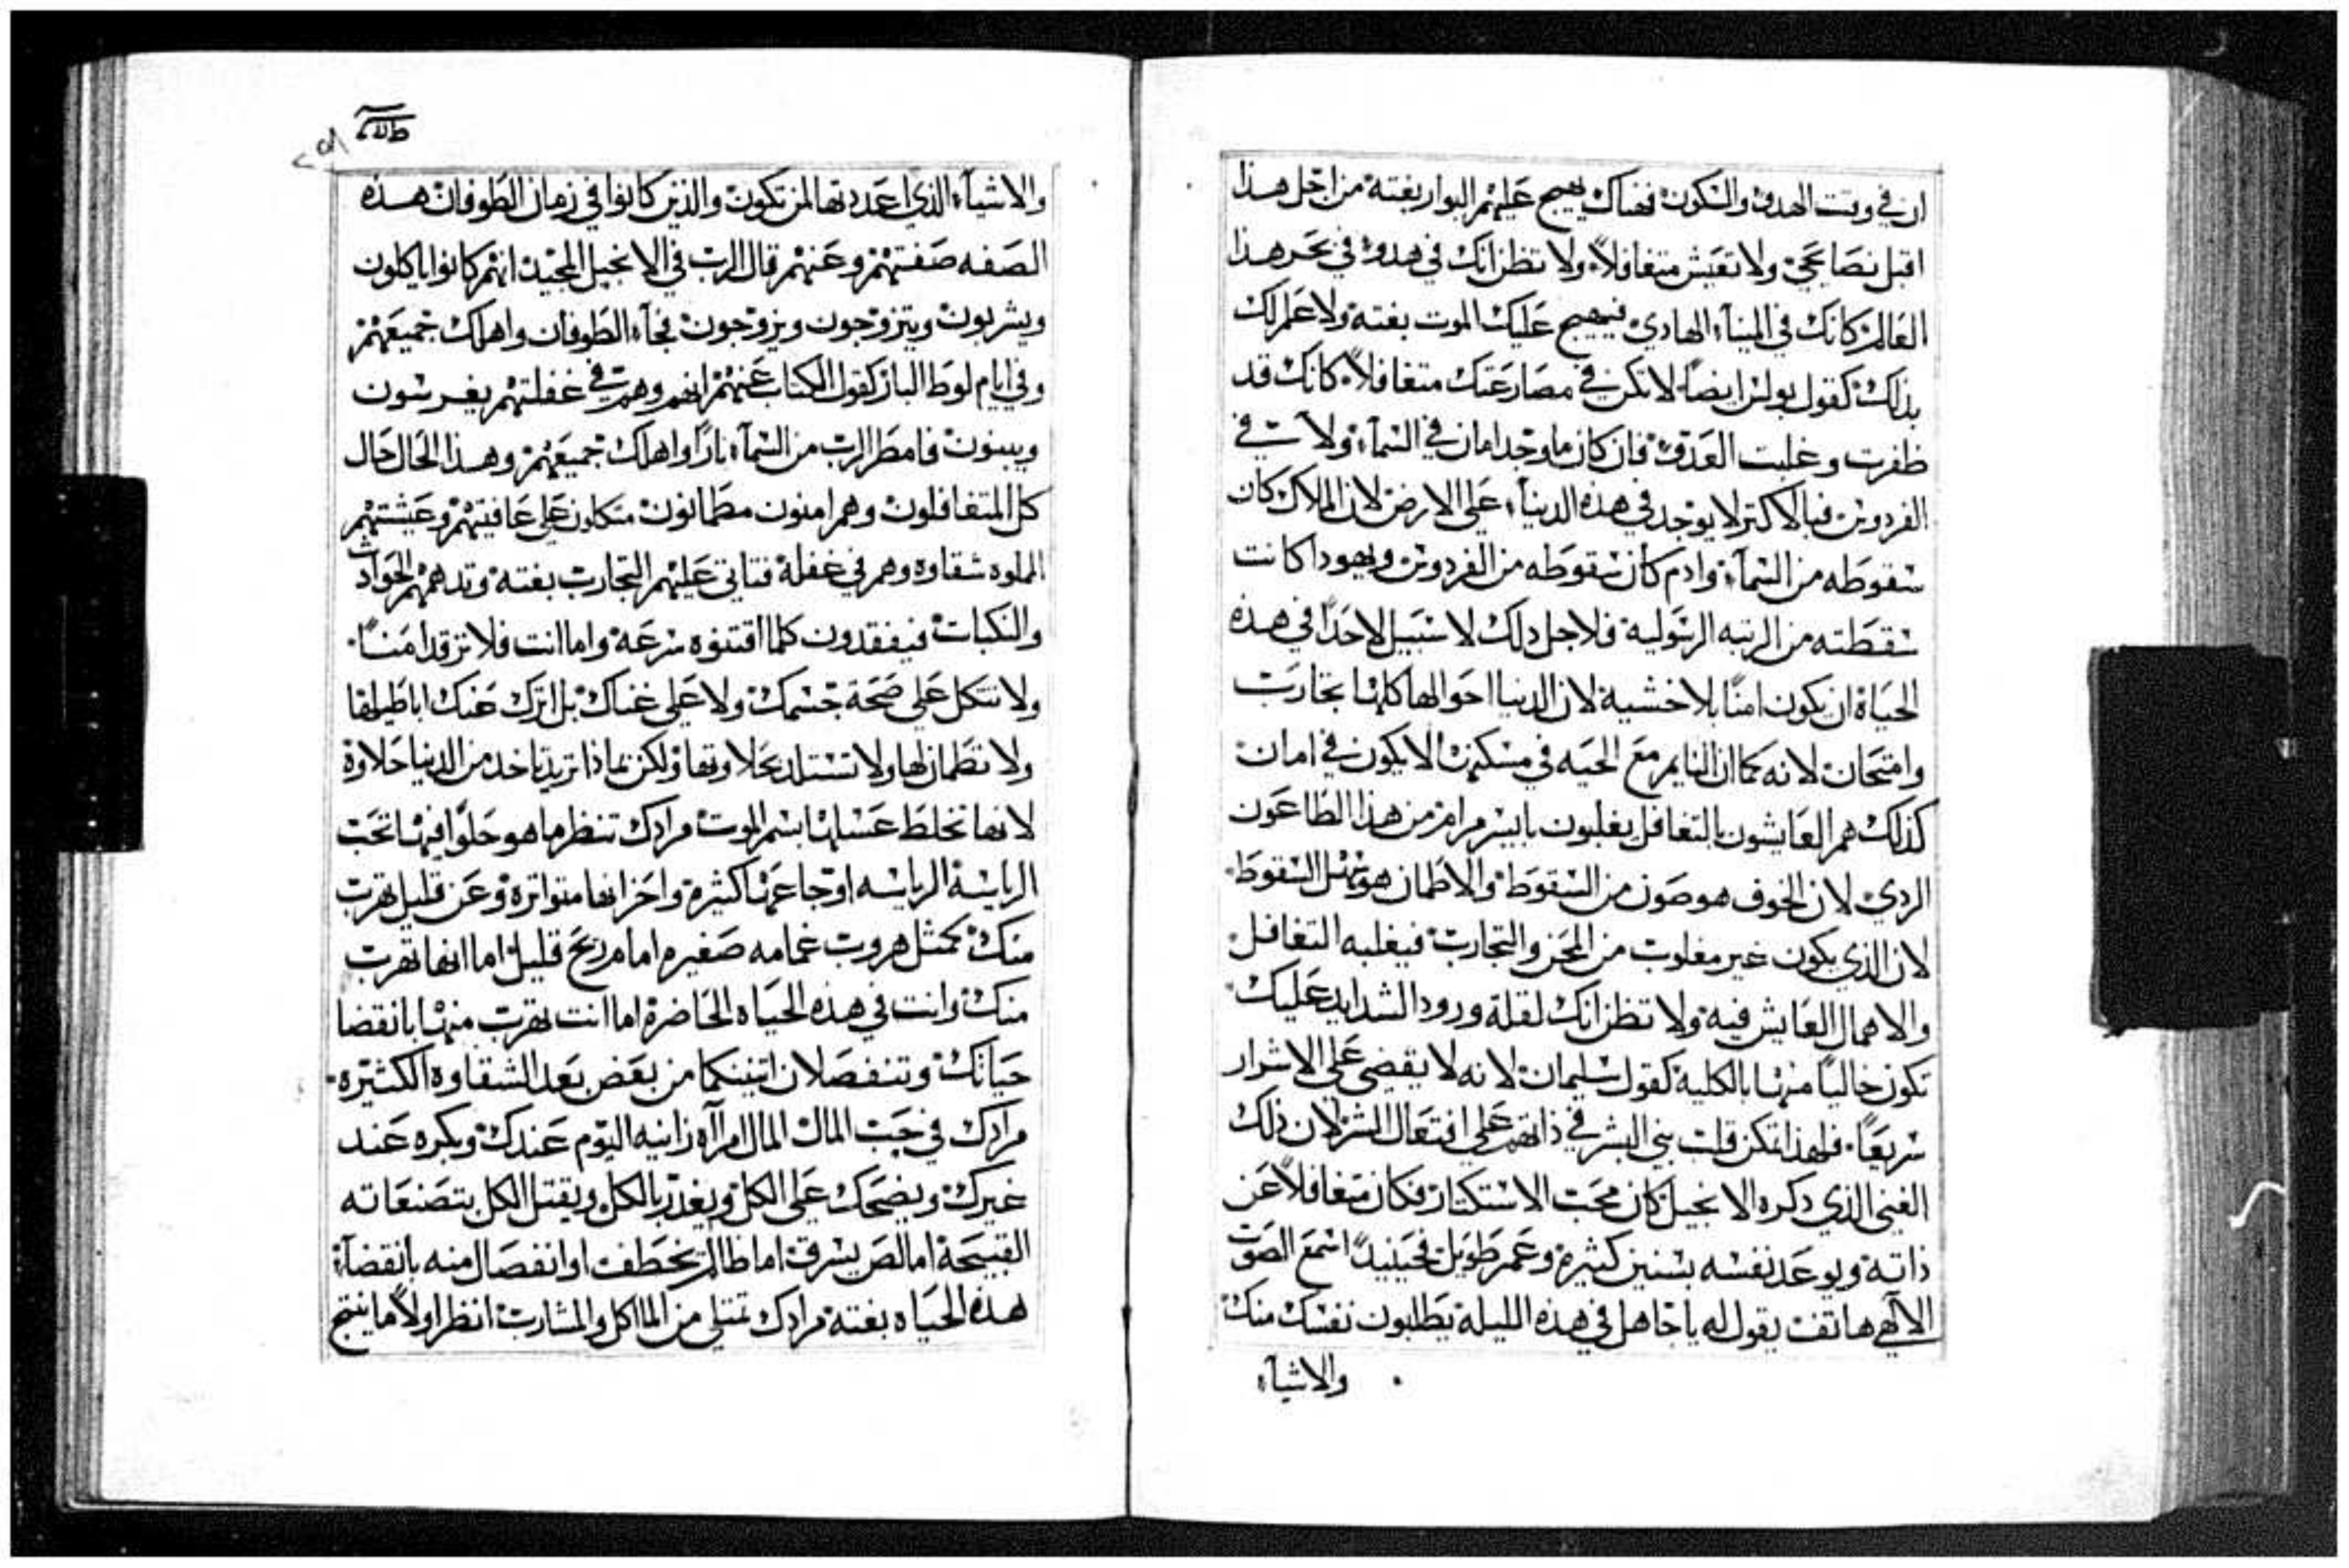 ان في وقت الهدو والسكون فهناك يهيج عليهم البوار بغتة من اجل هذا
اقبل نصايحي ولا تعيش متغافلاً ولا تظن انك في هدوء في بحر هذا
العالم كانك في الميناء الهادي فيهيج عليك الموت بغتة ولا علم لك
بذلك كقول بولس ايضاً لا تكن في مصارعتك متغافلاً كانك قد
ظفرت وغلبت العدو فان كان ما وجد امان في السماء ولا في
الفردوس فبالاكتر لا يوجد في هذه الدنيا على الارض لان الملاك كان
سقوطه من السماء وادم كان سقوطه من الفردوس ويهودا كانت
سقطته من الرتبه الرسولية فلاجل دلك لا سبيل لاحداً في هذه
الحياة ان يكون امناً بلا خشية لان الدنيا احوالها كلها تجارب
وامتحان لانه كما ان النايم مع الحيه في مسكنها لا يكون في امان
كذلك هم العايشون بالتغافل يغلبون بايسر مرام من هذا الطاعون
الردي لان الخوف هو صون من السقوط والاطمان هو السقوط
لان الذي يكون غير مغلوب من المحن والتجارب فيغلبه التغافل
والاهمال العايش فيه ولا تظن انك لقلة ورود الشدايد عليك
تكون خالياً منها بالكلية كقول سليمان لانه لا يقضى على الاشرار
سريعاً فلهذا تمكن قلب بني البشر في ذاتهم على افتعال الشر لان ذلك
الغني الذي دكره الانجيل كان محب الاستكتار فكان متغافلاً عن
داته ويوعد نفسه بسنين كثيرة وعمر طويل فحينيدً اسمع الصوت
الالهي هاتف يقول له يا جاهل في هذه الليلة يطلبون نفسك منك
والاشياء
٢٥٨
والاشياء الذي اعددتها لمن تكون والذين كانوا في زمان الطوفان هذه
الصفه صفتهم وعنهم قال الرب في الانجيل المجيد انهم كانوا ياكلون
ويشربون ويتزوجون ويزوجون فجاء الطوفان واهلك جميعهم
وفي ايام لوط البار كقول الكتاب عنهم انهم وهم في غفلتهم يغرسون
ويبنون فامطر الرب من السماء ناراً واهلك جميعهم وهذا الحال حال
كل المتغافلون وهم امنون مطمانون متكلون على عافيتهم وعيشتهم
الملوه شقاوه وهم في غفلة فتاتي عليهم التجارب بغتة وتدهمهم الحوادث
والنكبات فيفقدون كلما اقتنوه سرعة واما انت فلا ترقد امناً
ولا تتكل على صحة جسمك ولا على غناك بل اترك عنك اباطيلها
ولا تطمان لها ولا تستلد بحلاوتها ولكن بماذا تريد تاخد من الدنيا حلاوة
لانها تخلط عسلها بسم الموت مرادك تنظر ما هو حلواً فيها تحب
الرياسة الرياسه اوجاعها كثيرة واحزانها متواترة وعن قليل تهرب
منك كمثل هروب غمامه صغيره امام ريح قليل اما انها تهرب
منك وانت في هذه الحياه الحاضرة اما انت تهرب منها بانقضا
حياتك وتنفصلان اتنينكما من بعض بعد الشقاوة الكثيره
مرادك في حب المال المال امرآه زانيه اليوم عندك وبكره عند
غيرك ويضحك على الكل ويغدر بالكل ويقتل الكل بتصنعاته
القبيحة اما لص يسرق اما ظالم يخطف او انفصال منه بانقضاء
هذه الحياه بغتة مرادك تمتلي من الماكل والمشارب انظر اولاً ما ينتج